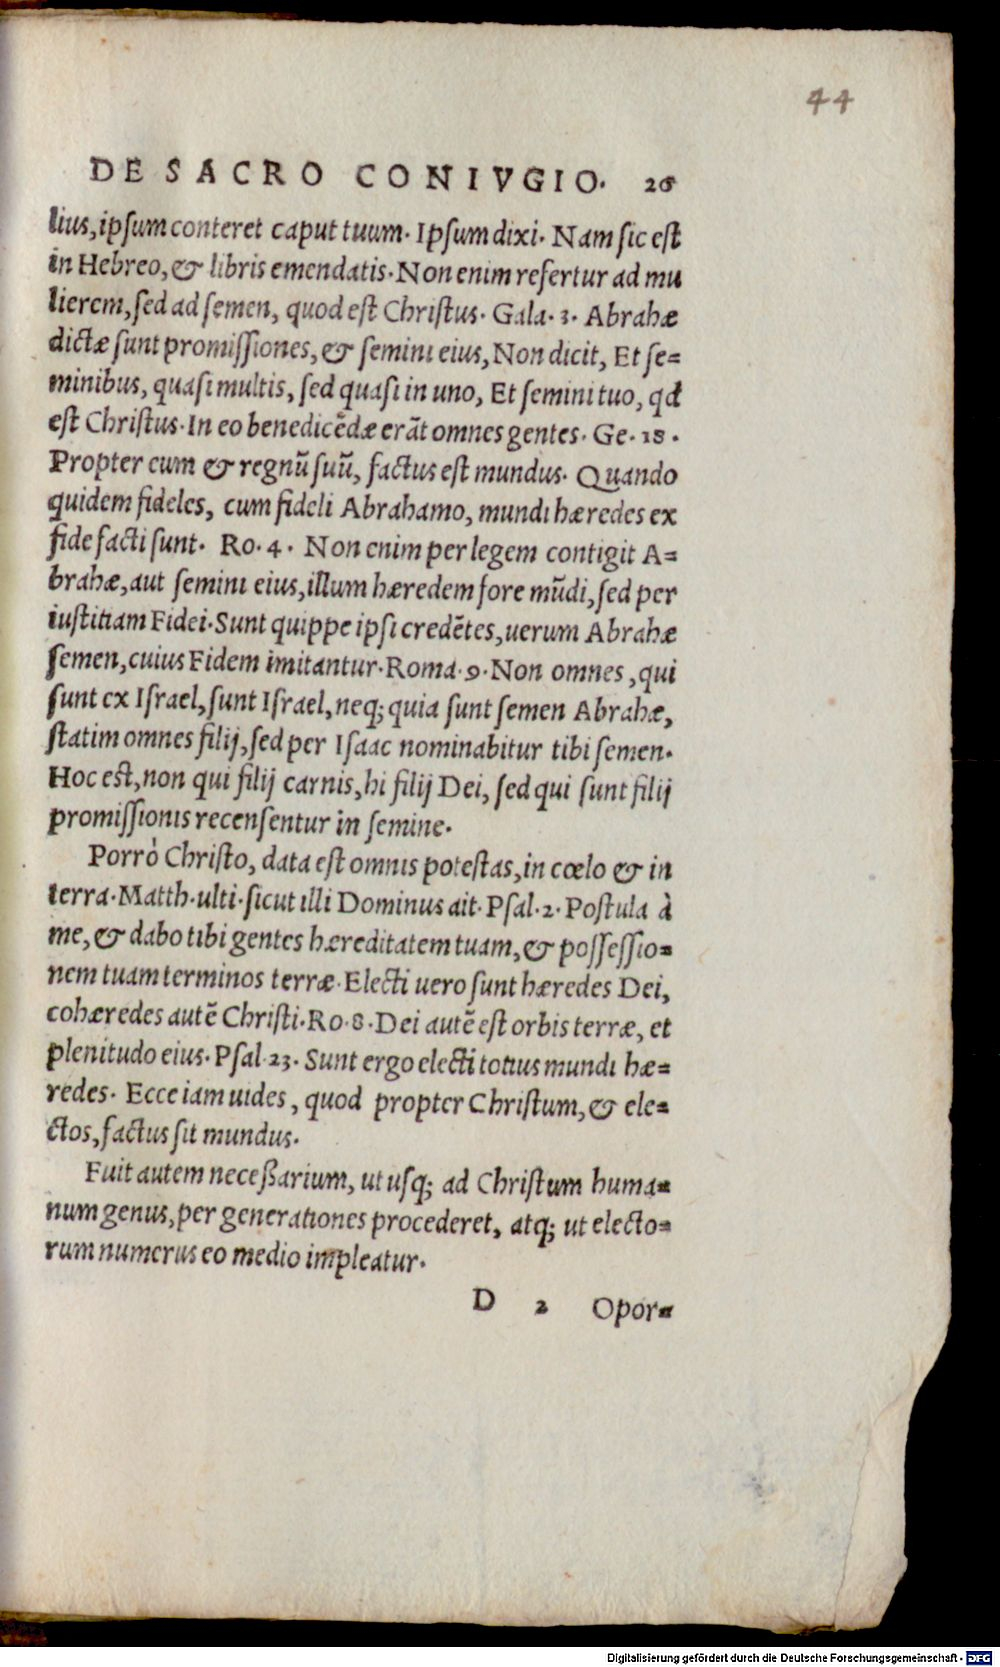 44
DE SACRO CONIVGIO. 26
lius, ipsum conteret caput tuum. Ipsum dixi. Nam sic est
in Hebreo, & libris emendatis. Non enim refertur ad mu
lierem, sed ad semen, quod est Christus. Gala. 3. Abrahæ
dictæ sunt promissiones, & semini eius, Non dicit, Et se=
minibus, quasi multis, sed quasi in uno, Et semini tuo, qd
est Christus. In eo benedicẽdæ erãt omnes gentes. Ge. 18.
Propter eum & regnũ suũ, factus est mundus. Quando
quidem fideles, cum fideli Abrahamo, mundi hæredes ex
fide facti sunt. Ro. 4. Non enim per legem contigit A=
brahæ, aut semini eius, illum hæredem fore mũdi, sed per
iustitiam Fidei. Sunt quippe ipsi credẽtes, uerum Abrahæ
semen, cuius Fidem imitantur. Roma. 9. Non omnes, qui
sunt ex Israel, sunt Israel, neq; quia sunt semen Abrahæ,
statim omnes filij, sed per Isaac nominabitur tibi semen.
Hoc est, non qui filij carnis, hi filij Dei, sed qui sunt filij
promissionis recensentur in semine.
Porrò Christo, data est omnis potestas, in cœlo & in
terra. Matth. ulti. sicut illi Dominus ait. Psal. 2. Postula à
me, & dabo tibi gentes hæreditatem tuam, & possessio=
nem tuam terminos terræ. Electi uero sunt hæredes Dei,
cohæredes autẽ Christi. Ro. 8. Dei autẽ est orbis terræ, et
plenitudo eius. Psal. 23. Sunt ergo electi totius mundi hæ=
redes. Ecce iam uides, quod propter Christum, & ele=
ctos, factus sit mundus.
Fuit autem neceßarium, ut usq; ad Christum huma=
num genus, per generationes procederet, atq; ut electo=
rum numerus eo medio impleatur.
D 2 Opor=
Digitalisierung gefördert durch die Deutsche Forschungsgemeinschaft - DFG